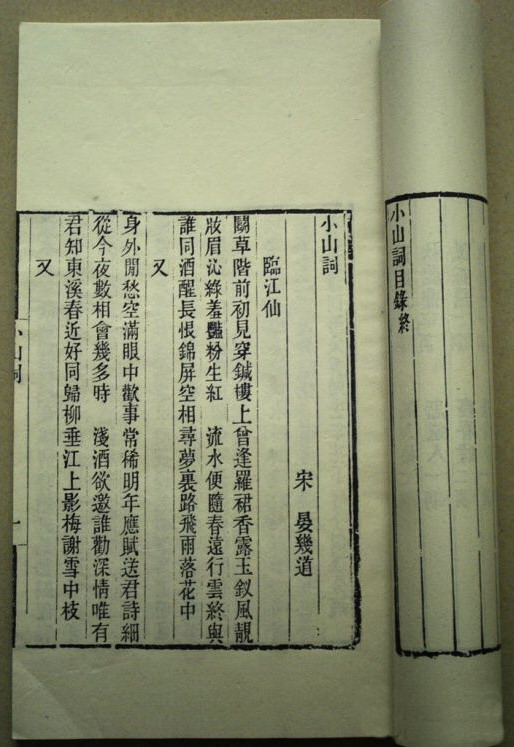 小山詞目錄終
小山詞
宋 晏幾道
臨江仙
鬭草階前初見穿鍼樓上曾逢羅裙香露玉釵風靚
妝眉沁綠羞豔粉生紅 流水便隨春遠行雲終與
誰同酒醒長恨錦屏空相尋夢裏路飛雨落花中
又
身外閒愁空滿眼中歡事常稀明年應賦送君詩細
從今夜數相會幾多時 淺酒欲邀誰勸深情唯有
君知東溪春近好同歸柳垂江上影梅謝雪中枝
又
小山詞
一